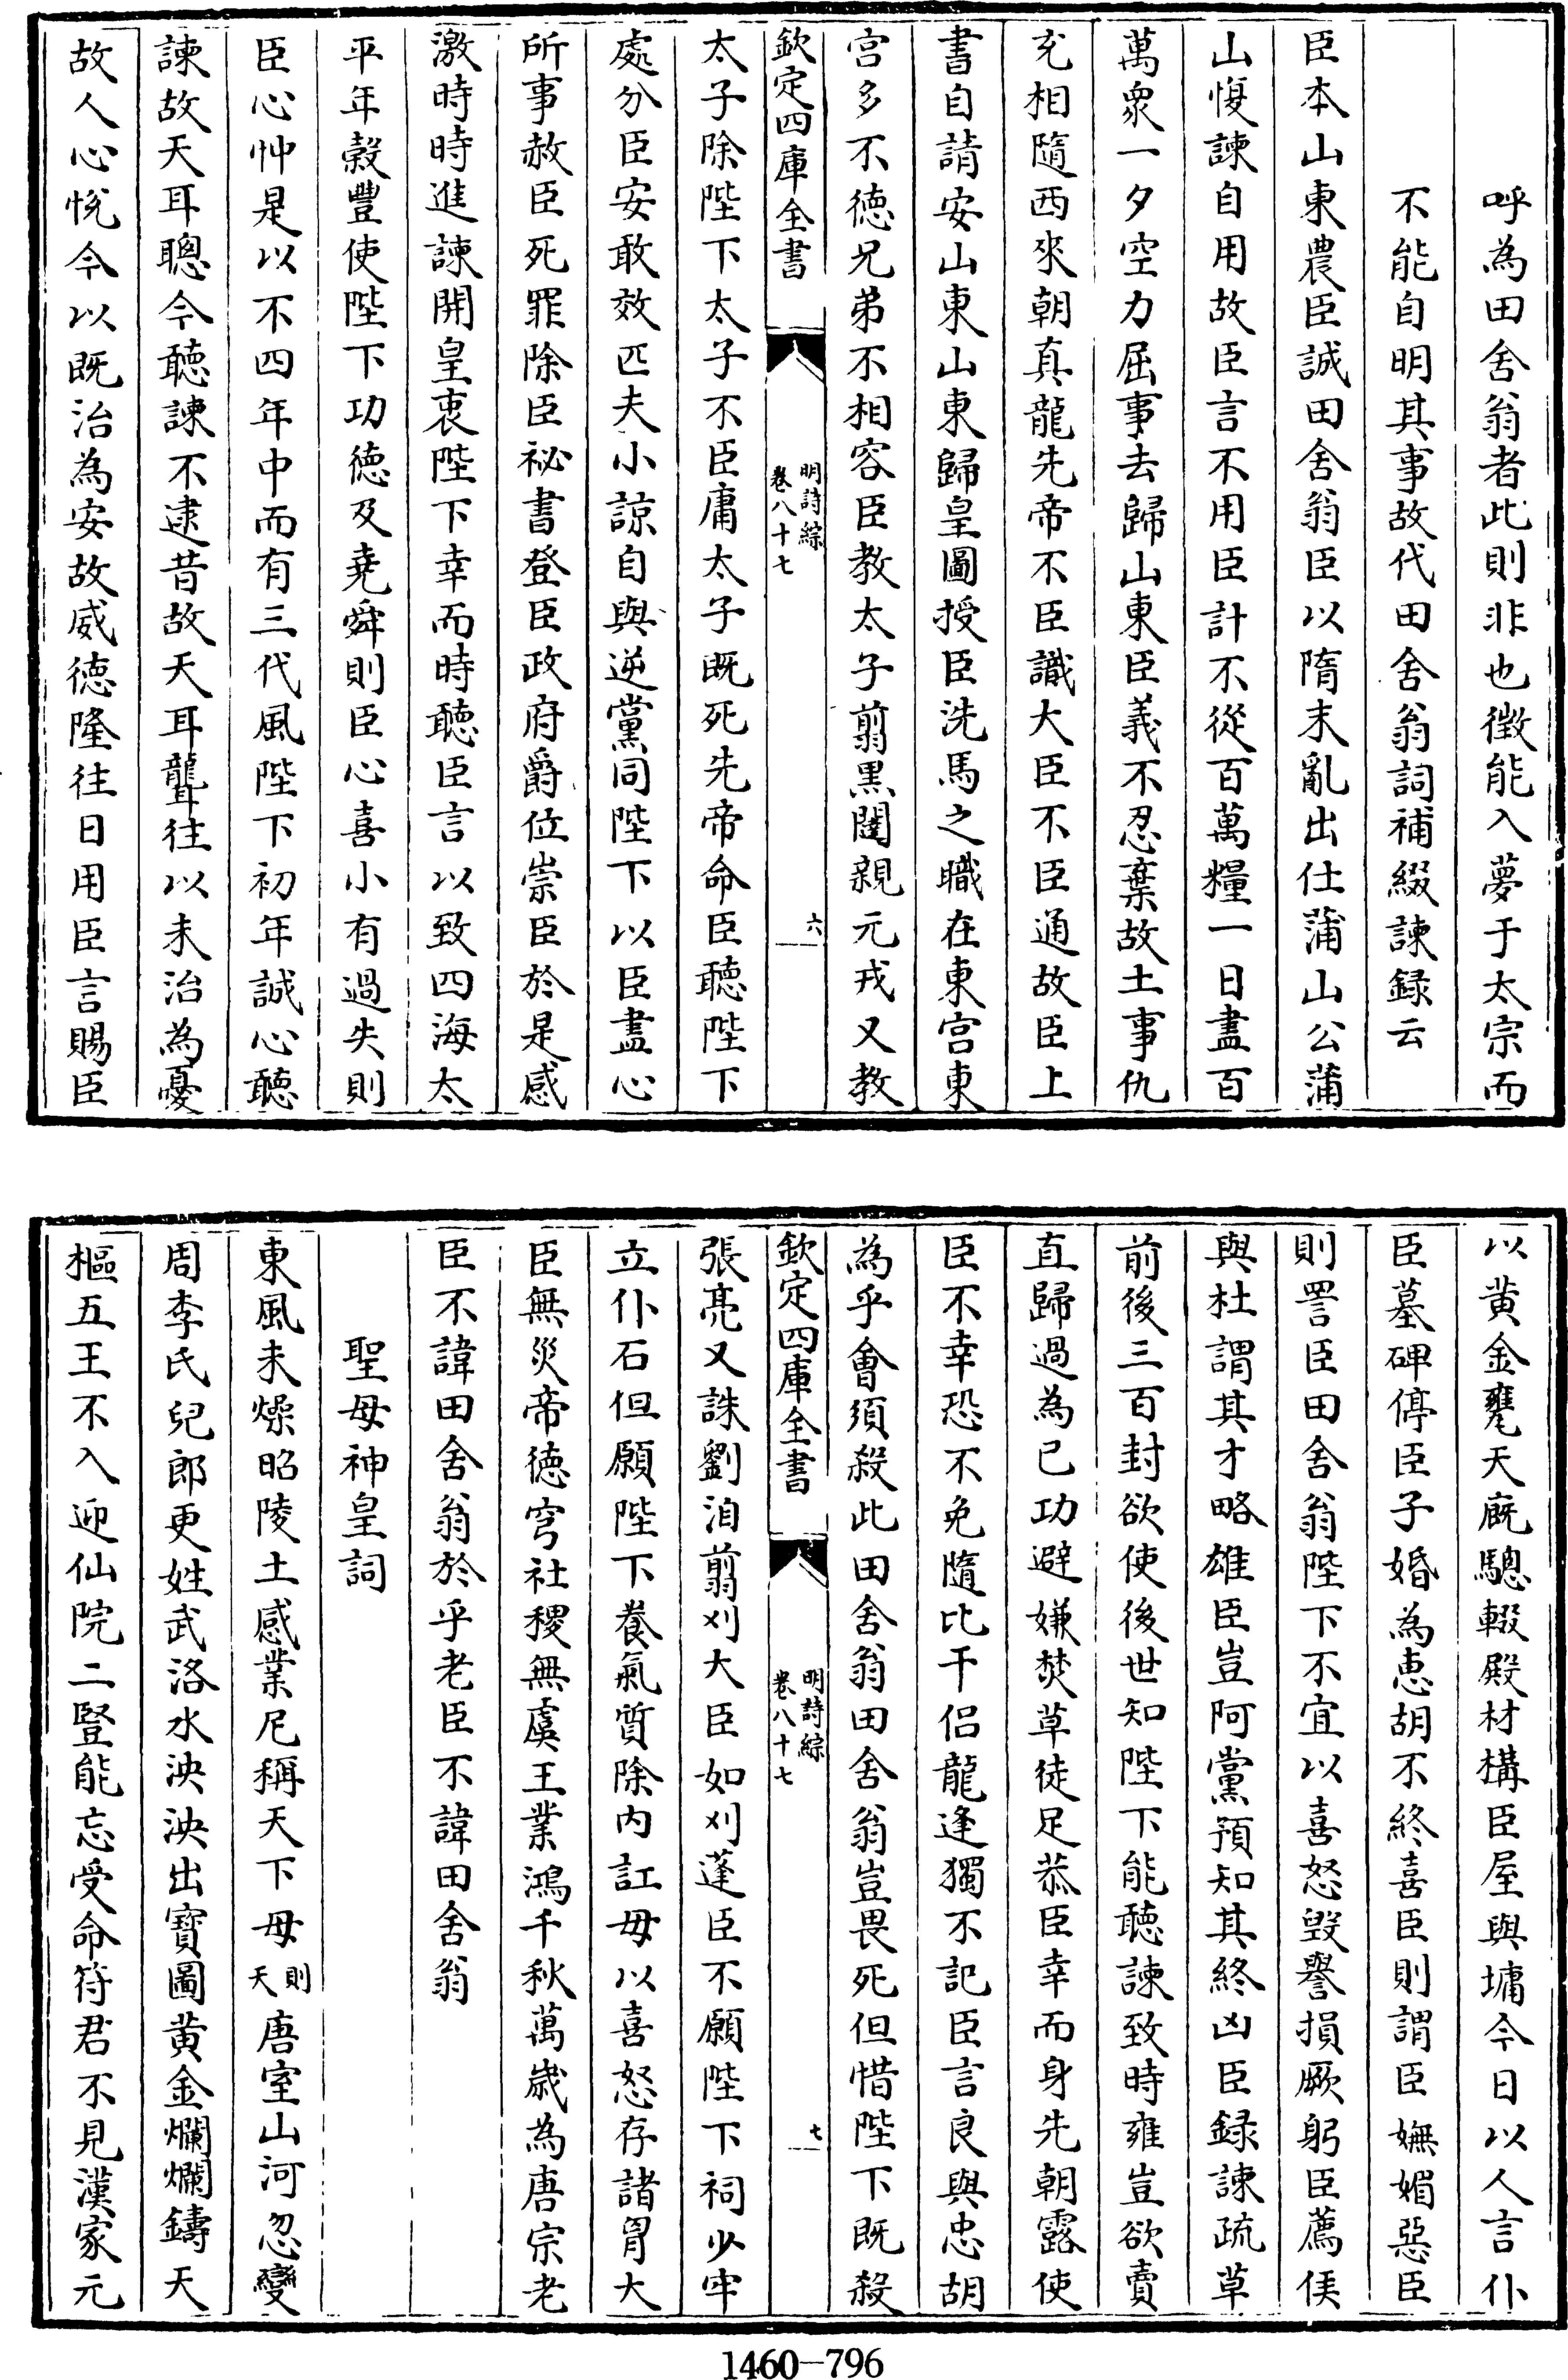 呼為田舍翁者此則非也徴能入夢于太宗而
不能自明其事故代田舍翁詞補綴諫録云
臣本山東農臣誠田舍翁臣以隋末亂出仕蒲山公蒲
山愎諫自用故臣言不用臣計不從百萬糧一日盡百
萬衆一夕空力屈事去歸山東臣義不忍棄故土事仇
充相隨西來朝真龍先帝不臣識大臣不臣通故臣上
書自請安山東山東歸皇圖授臣洗馬之職在東宫東
宫多不徳兄弟不相容臣教太子翦黒闥親元戎又教
欽定四庫全書
明詩綜
卷八十七
六
太子除陛下太子不臣庸太子既死先帝命臣聽陛下
處分臣安敢效匹夫小諒自與逆黨同陛下以臣盡心
所事赦臣死罪除臣祕書登臣政府爵位崇臣於是感
激時時進諫開皇衷陛下幸而時聽臣言以致四海太
平年穀豐使陛下功徳及堯舜則臣心喜小有過失則
臣心忡是以不四年中而有三代風陛下初年誠心聽
諫故天耳聰今聽諫不逮昔故天耳聾往以未治為憂
故人心悅今以既治為安故威徳隆往日用臣言賜臣
以黄金甕天廐驄輟殿材構臣屋與墉今日以人言仆
臣墓碑停臣子婚為恵胡不終喜臣則謂臣嫵媚惡臣
則詈臣田舍翁陛下不宜以喜怒毁譽損厥躬臣薦侯
與杜謂其才略雄臣豈阿黨預知其終凶臣録諫疏草
前後三百封欲使後世知陛下能聽諫致時雍豈欲賣
直歸過為已功避嫌焚草徒足恭臣幸而身先朝露使
臣不幸恐不免隨比干侣龍逢獨不記臣言良與忠胡
為乎會須殺此田舍翁田舍翁豈畏死但惜陛下既殺
欽定四庫全書
明詩綜
卷八十七
七
張亮又誅劉洎翦刈大臣如刈蓬臣不願陛下祠少牢
立仆石但願陛下養氣質除内訌毋以喜怒存諸胷大
臣無災帝徳穹社稷無虞王業鴻千秋萬歲為唐宗老
臣不諱田舍翁於乎老臣不諱田舍翁
聖母神皇詞
東風未燥昭陵土感業尼稱天下母則天唐室山河忽變
周李氏兒郎更姓武洛水泱泱出寶圖黄金爛爛鑄天
樞五王不入迎仙院二豎能忘受命符君不見漢家元
1460-796